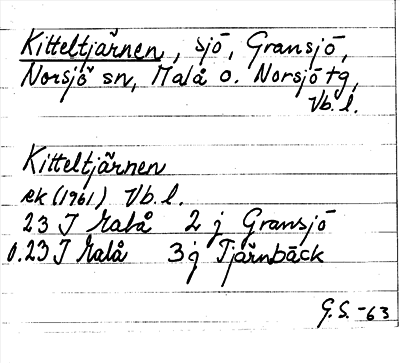 Kitteltjärnen, sjö, Gransjö,
Norsjö sn, Malå o. Norsjö tg,
Vb. l.
Kitteltjärnen
ek (1961) Vb. l.
23 J Malå 2 j Gransjö
o. 23 J Malå 3 j Tjärnbäck
G.S. -63